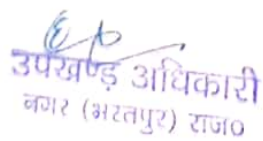 उपखण्ड़ अधिकारी
नगर (भरतपुर) राज०